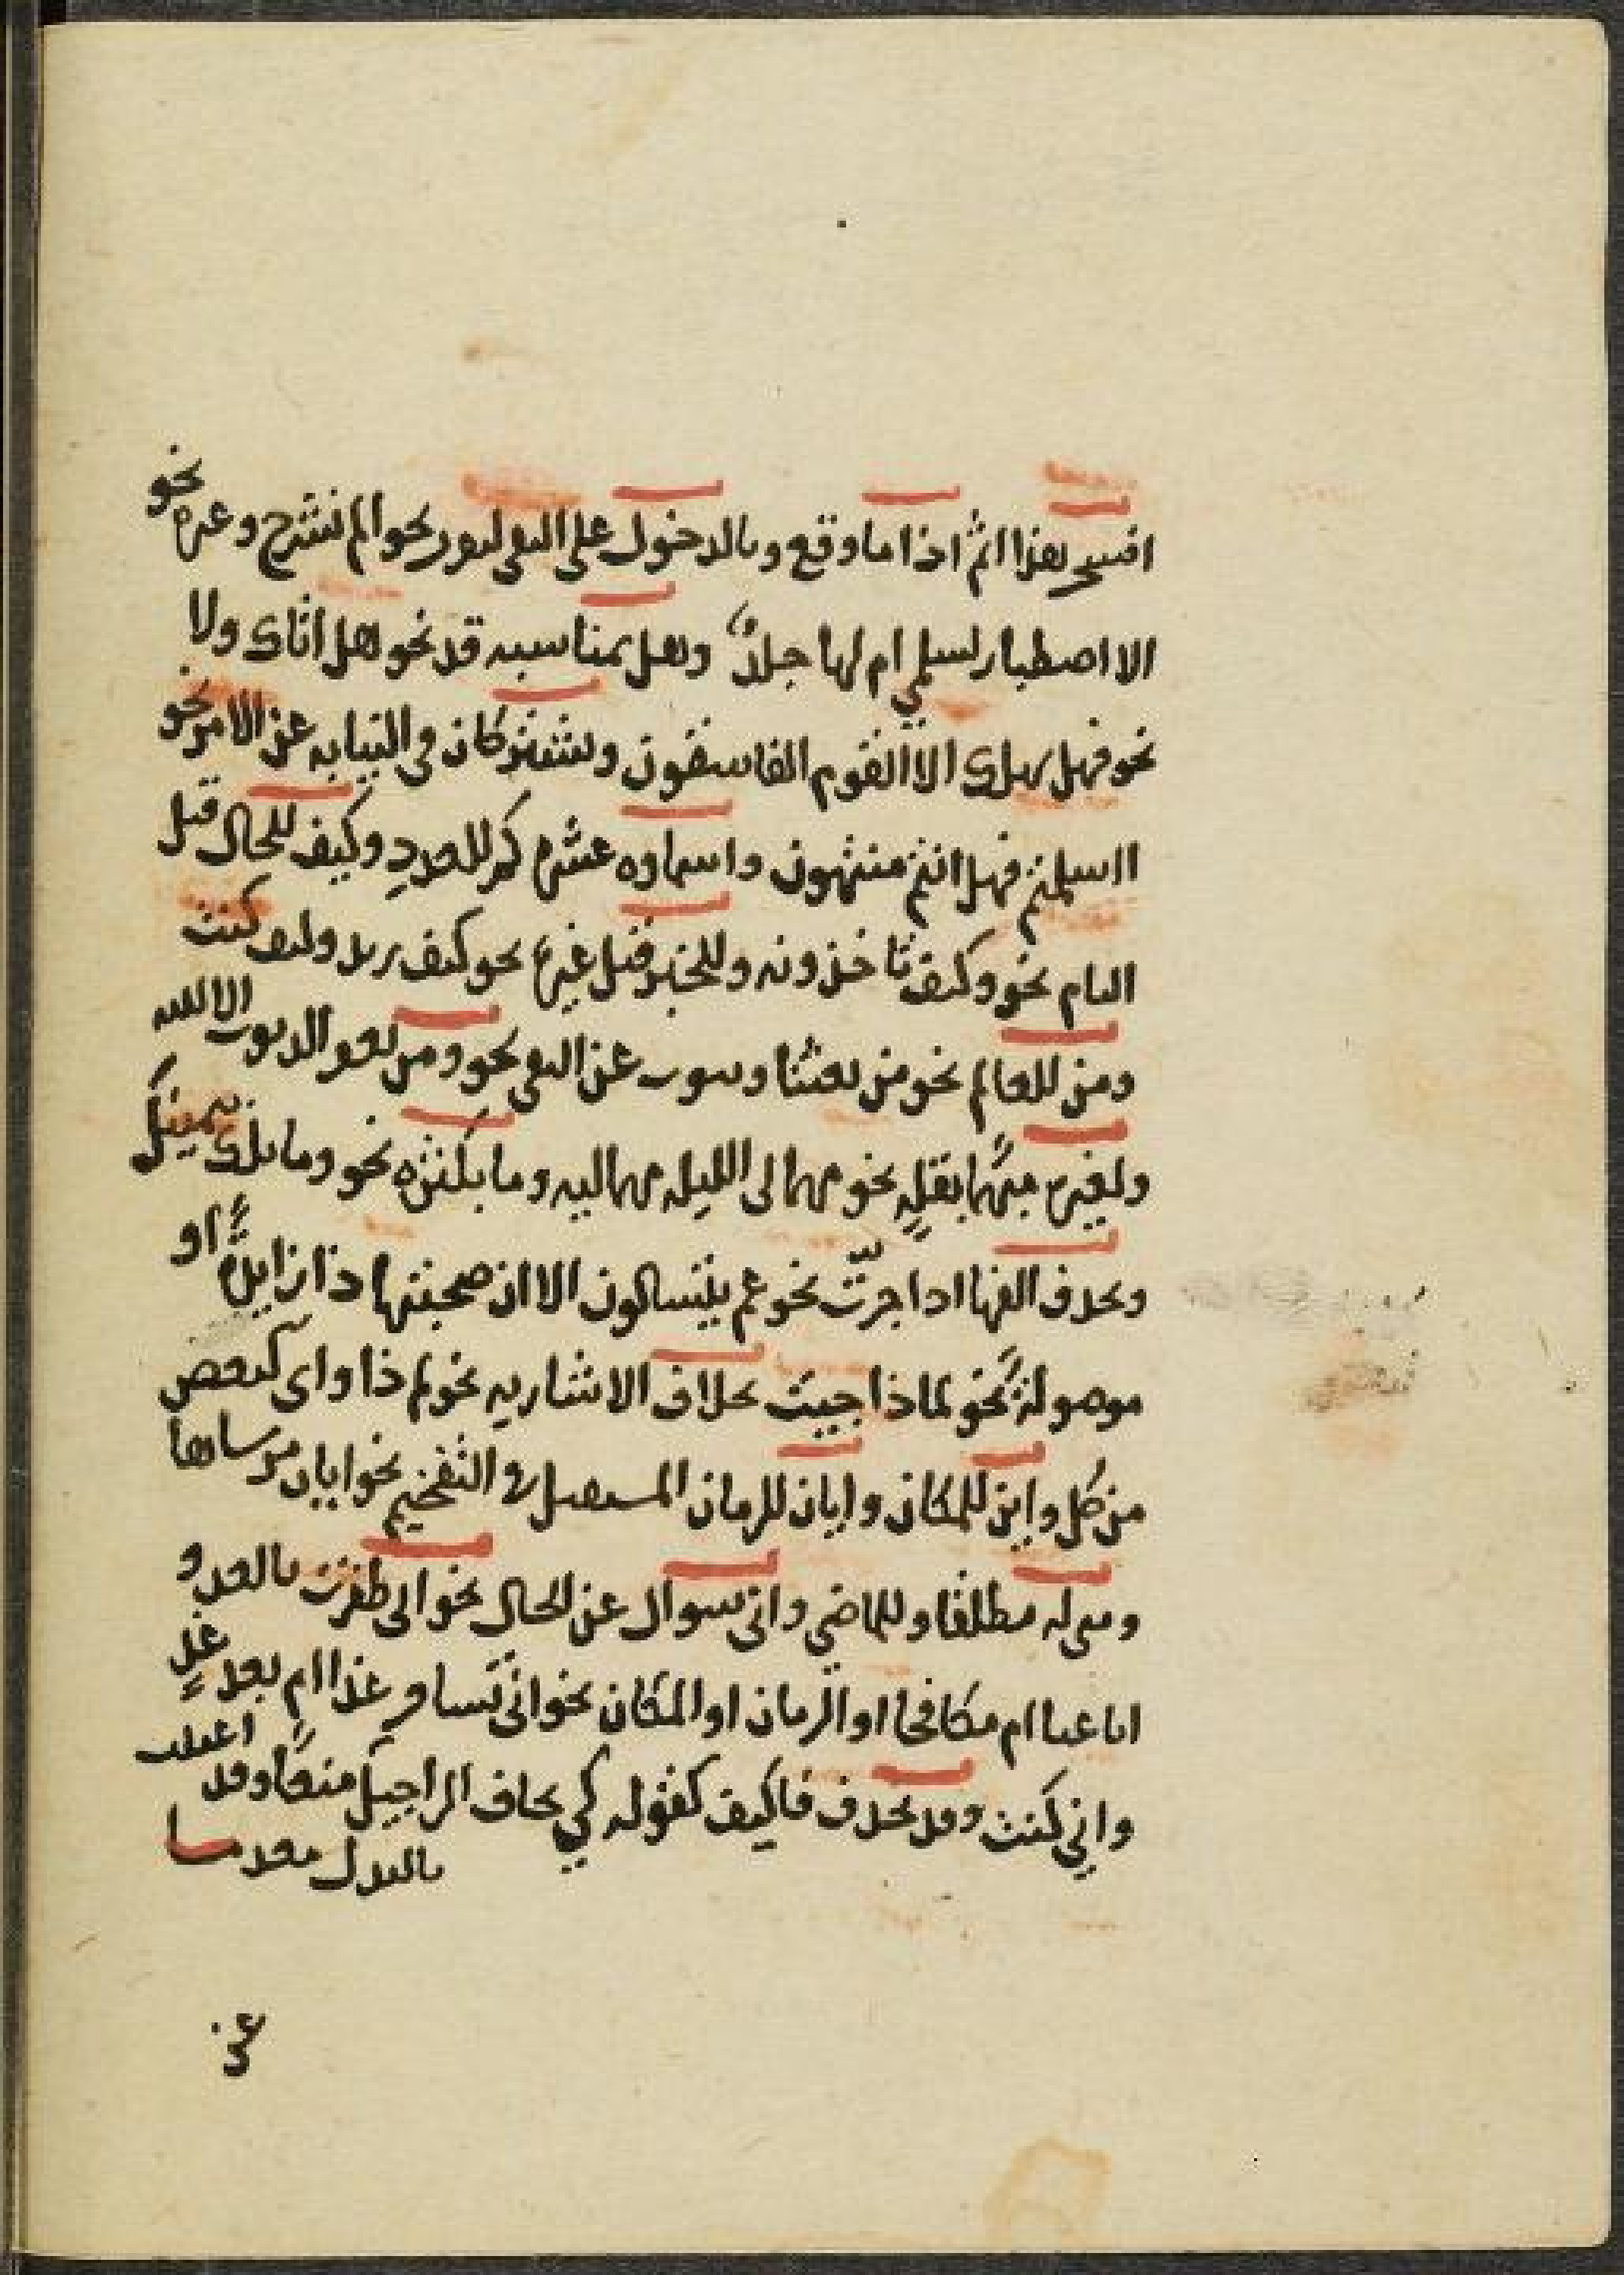 افسحر هذا اثم اذا ما وقع وبالدخول على النفى لتقرير نحو الم نشرح وغيره نحو
الا اصطبار لسلمي ام لها جلدٌ وهل بمناسبه قد نحو هل اتاى ولا
نحو فهل يهلك الا القوم الفاسقون وتشتركان فى النيابه عن الامر نحو
ااسلمتم فهل انتم منتهون واسماوه عشره كم للعددِ وكيف للحال قبل
التام نحو وكيف تاخذونه وللخبر قبل غيره نحو كيف زيد وكيف كنت
ومن للعالم نحو من بعثنا وينوب عن النفى نحو ومن يغفر الذنوب الا الله
ولغيره مبهما بقلةٍ نحو مهما لى الليله مهما ليه وما بكثره نحو وما تلك بيمينك
وتحذف الفها اذا جرّت نحو عم يتسالون الا ان صحبتها ذا زايدةً او
موصولةً نحو لماذا جيت بخلاف الاشاريه نحو لم ذا واى كبعض
من كل واين للمكان وايان للزمان المستقبل فى التفخيم نحو ايان مرساها
ومتى له مطلقا وللماضى وانى سوال عن الحال نحو انى ظفرت بالعدو
ام مكافحا او الزمان او المكان نحو انى تسافر غدا ام بعد غدٍ
وانى كنت وقد تحذف فا كيف كقوله كي يخاف
بالبدل
عن